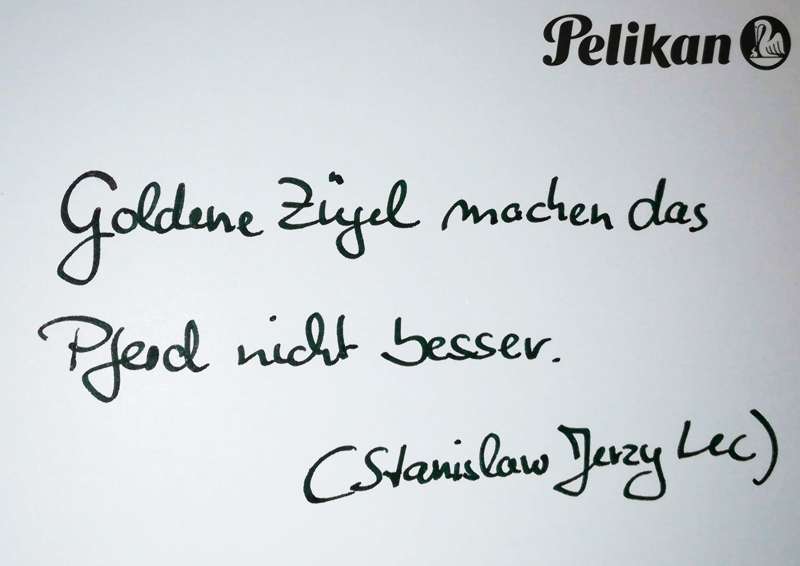 Pelikan
Goldene Zügel machen das
Pferd nicht besser.
(Stanislaw Jerzy Lec)